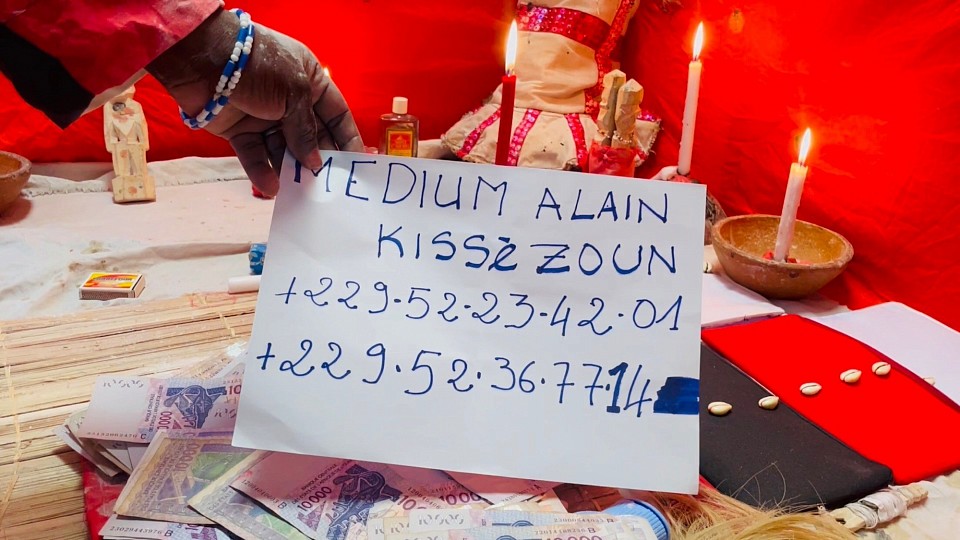 MEDIUM ALAIN
KISSè ZOUN
+229.52.23.42.01
+229.52.36.77.14
10.000
10.00